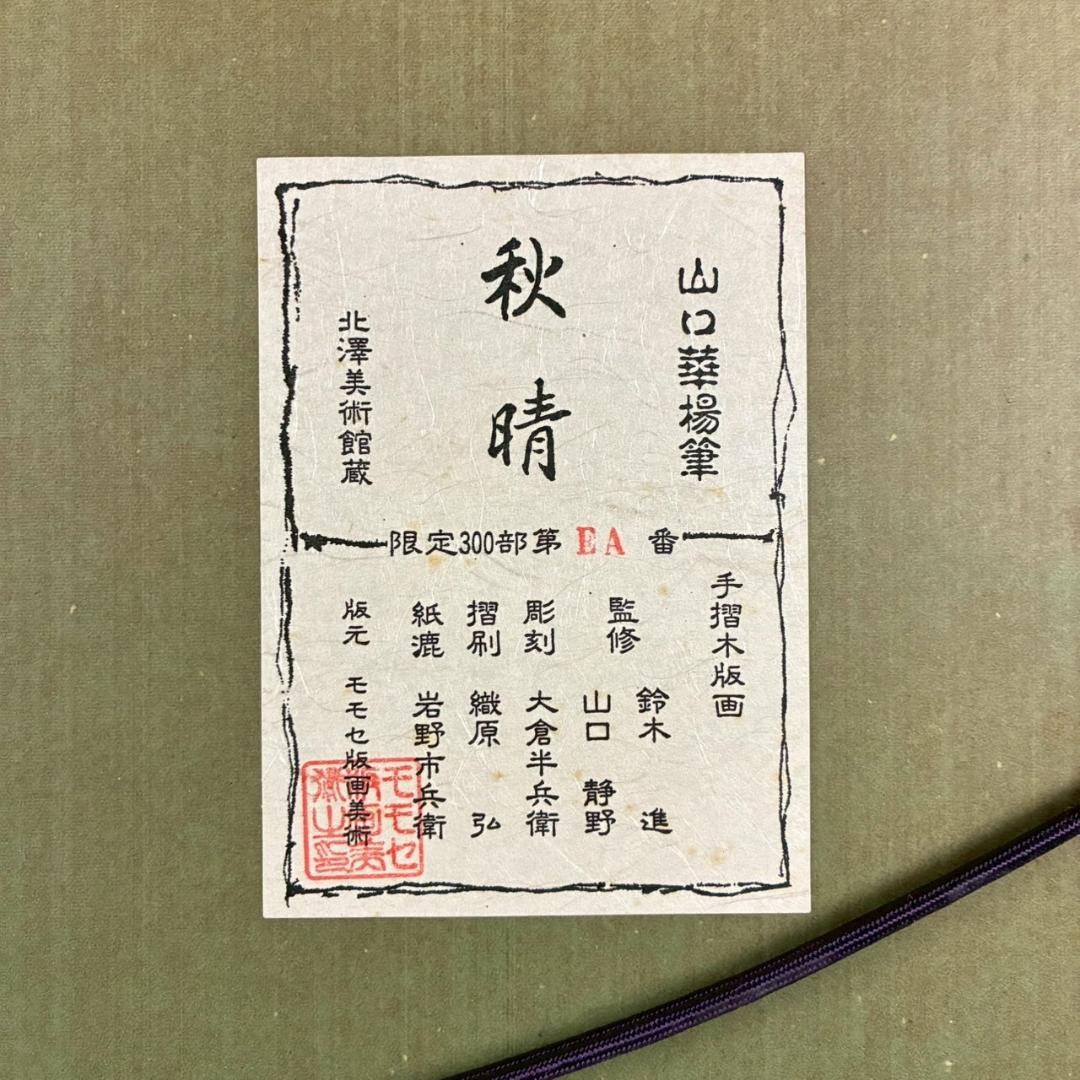 山口華楊筆
秋晴
北澤美術館蔵
限定300部第 EA 番
手摺木版画
監修 鈴木 進
山口 静野
彫刻 大倉半兵衛
摺刷 織原 弘
紙漉 岩野市兵衛
版元 モモセ版画美術
モモセ
版画美
術之印